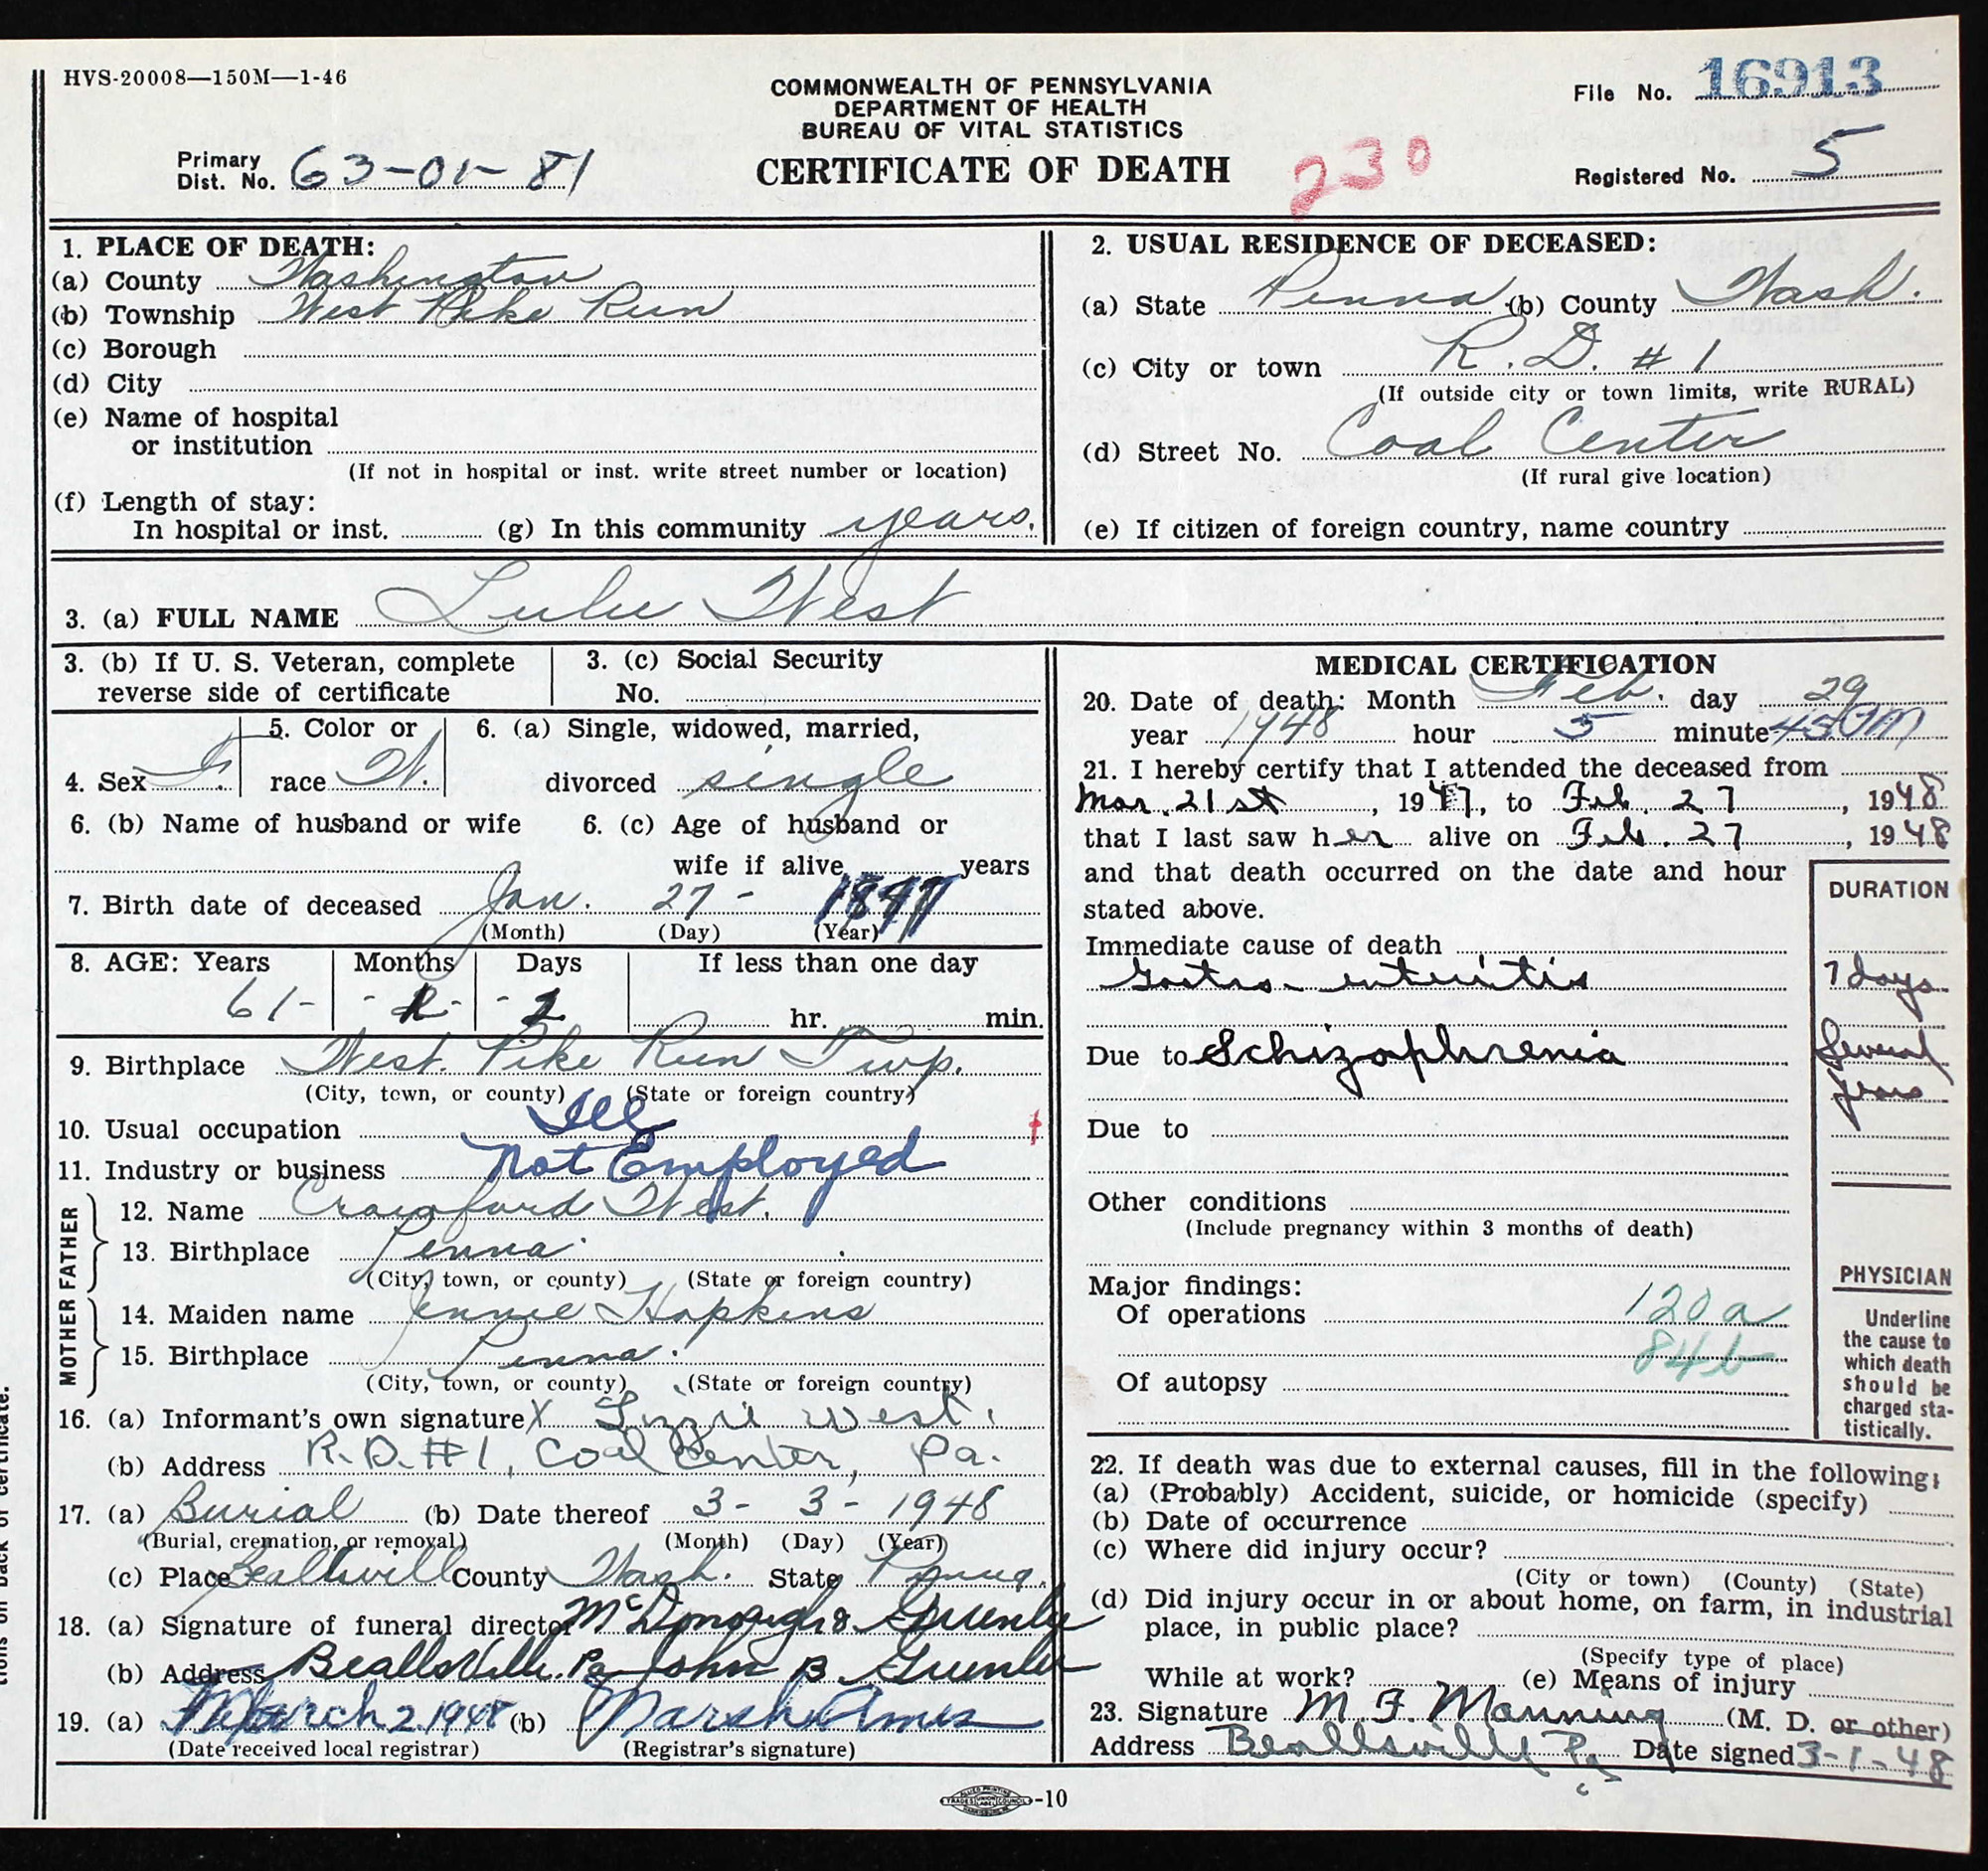 HVS-20008—150M—1-46
COMMONWEALTH OF PENNSYLVANIA
DEPARTMENT OF HEALTH
BUREAU OF VITAL STATISTICS
CERTIFICATE OF DEATH
230
File No. 16913
Primary
Dist. No. 63-01-81
Registered No. 5
1. PLACE OF DEATH:
(a) County Washington
(b) Township West Pike Run
(c) Borough
(d) City
(e) Name of hospital
or institution
(If not in hospital or inst. write street number or location)
(f) Length of stay:
In hospital or inst. (g) In this community years.
2. USUAL RESIDENCE OF DECEASED:
(a) State Penna (b) County Wash.
(c) City or town R.D. #1
(If outside city or town limits, write RURAL)
(d) Street No. Coal Center
(If rural give location)
(e) If citizen of foreign country, name country
3. (a) FULL NAME Lulu West
3. (b) If U. S. Veteran, complete
reverse side of certificate
3. (c) Social Security
No.
4. Sex F.
5. Color or
race W.
6. (a) Single, widowed, married,
divorced single
6. (b) Name of husband or wife
6. (c) Age of husband or
wife if alive years
7. Birth date of deceased Jan. 27 -
(Month) (Day) (Year)
8. AGE: Years Months Days If less than one day
61- 2
hr. min.
9. Birthplace West. Pike Run Twp.
(City, town, or county) (State or foreign country)
10. Usual occupation Ill
11. Industry or business Not Employed
FATHER
12. Name Crawford West.
13. Birthplace Penna.
(City, town, or county) (State or foreign country)
MOTHER
14. Maiden name Jennie Hopkins
15. Birthplace Penna.
(City, town, or county) (State or foreign country)
16. (a) Informant's own signature X Lizzie West.
(b) Address R.D. #1, Coal Center, Pa.
17. (a) Burial (b) Date thereof 3- 3- 1948
(Burial, cremation, or removal) (Month) (Day) (Year)
(c) Place Beallsvill County Wash. State Penna.
18. (a) Signature of funeral director McDonough &
(b) Address Beallsville. Pa John B.
19. (a) March 2. 1948 (b) Marsh Ames
(Date received local registrar) (Registrar's signature)
MEDICAL CERTIFICATION
20. Date of death: Month Feb. day 29
year 1948 hour 5 minute 45
21. I hereby certify that I attended the deceased from
Mar. 21st, 1947, to Feb. 27, 1948
that I last saw her alive on Feb. 27, 1948
and that death occurred on the date and hour
stated above.
DURATION
Immediate cause of death
Gastro-enteritis 7 days
Due to Schizophrenia Several
years
Due to
Other conditions
(Include pregnancy within 3 months of death)
Major findings:
Of operations 120a
84b
Of autopsy
PHYSICIAN
Underline
the cause to
which death
should be
charged sta-
tistically.
22. If death was due to external causes, fill in the following:
(a) (Probably) Accident, suicide, or homicide (specify)
(b) Date of occurrence
(c) Where did injury occur?
(City or town) (County) (State)
(d) Did injury occur in or about home, on farm, in industrial
place, in public place?
(Specify type of place)
While at work? (e) Means of injury
23. Signature M. F. Manning (M. D. or other)
Address Beallsville Pa. Date signed 3-1-48
-10